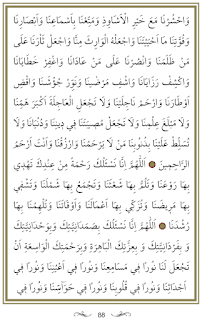 وَاحْشُرْنَا مَعَ خَيْرِ الْأَسْتَاذِ وَمَتِّعْنَا بِأَسْمَاعِنَا وَأَبْصَارِنَا
وَقُوَّتِنَا مَا أَحْيَيْتَنَا وَاجْعَلْهُ الْوَارِثَ مِنَّا وَاجْعَلْ ثَأْرَنَا عَلَى
مَنْ ظَلَمَنَا وَانْصُرْنَا عَلَى مَنْ عَادَانَا وَاغْفِرْ خَطَايَانَا
وَاكْشِفْ رَزَايَانَا وَاشْفِ مَرْضٰينَا وَنَوِّرْ
وَارْحَمْ وَلَا تَجْعَلِ الْعَاجِلَةَ أَكْبَرَ هَمِّنَا
وَلَا مَبْلَغَ عِلْمِنَا وَلَا تَجْعَلْ مُصِيبَتَنَا فِي دِينِنَا وَدُنْيَانَا وَلَا
تُسَلِّطْ عَلَيْنَا بِذُنُوبِنَا مَنْ لَا يَرْحَمُنَا وَارْزُقْنَا وَأَنْتَ أَرْحَمُ
الرَّاحِمِينَ اَللّٰهُمَّ إِنَّا نَسْئَلُكَ رَحْمَةً مِنْ عِنْدِكَ تَهْدِي
بِهَا وَتَلُمُّ بِهَا شَعْثَنَا وَتَجْمَعُ بِهَا شَمْلَنَا وَتَشْفِي
بِهَا مَرِيضَنَا وَتُزَكِّي بِهَا أَعْمَالَنَا وَأَوْقَاتَنَا وَتُلْهِمُنَا بِهَا
رُشْدَنَا اَللّٰهُمَّ إِنَّا نَسْئَلُكَ بِصَمَدَانِيَّتِكَ وَبِوَحْدَانِيَّتِكَ
وَبِفَرْدَانِيَّتِكَ وَبِعِزَّتِكَ الْبَاهِرَةِ وَبِرَحْمَتِكَ الْوَاسِعَةِ أَنْ
تَجْعَلَ لَنَا نُورًا فِي مَسَامِعِنَا وَنُورًا فِي أَعْيُنِنَا وَنُورًا فِي
أَجْدَاثِنَا وَنُورًا فِي قُلُوبِنَا وَنُورًا فِي حَوَاسِّنَا وَنُورًا فِي
88